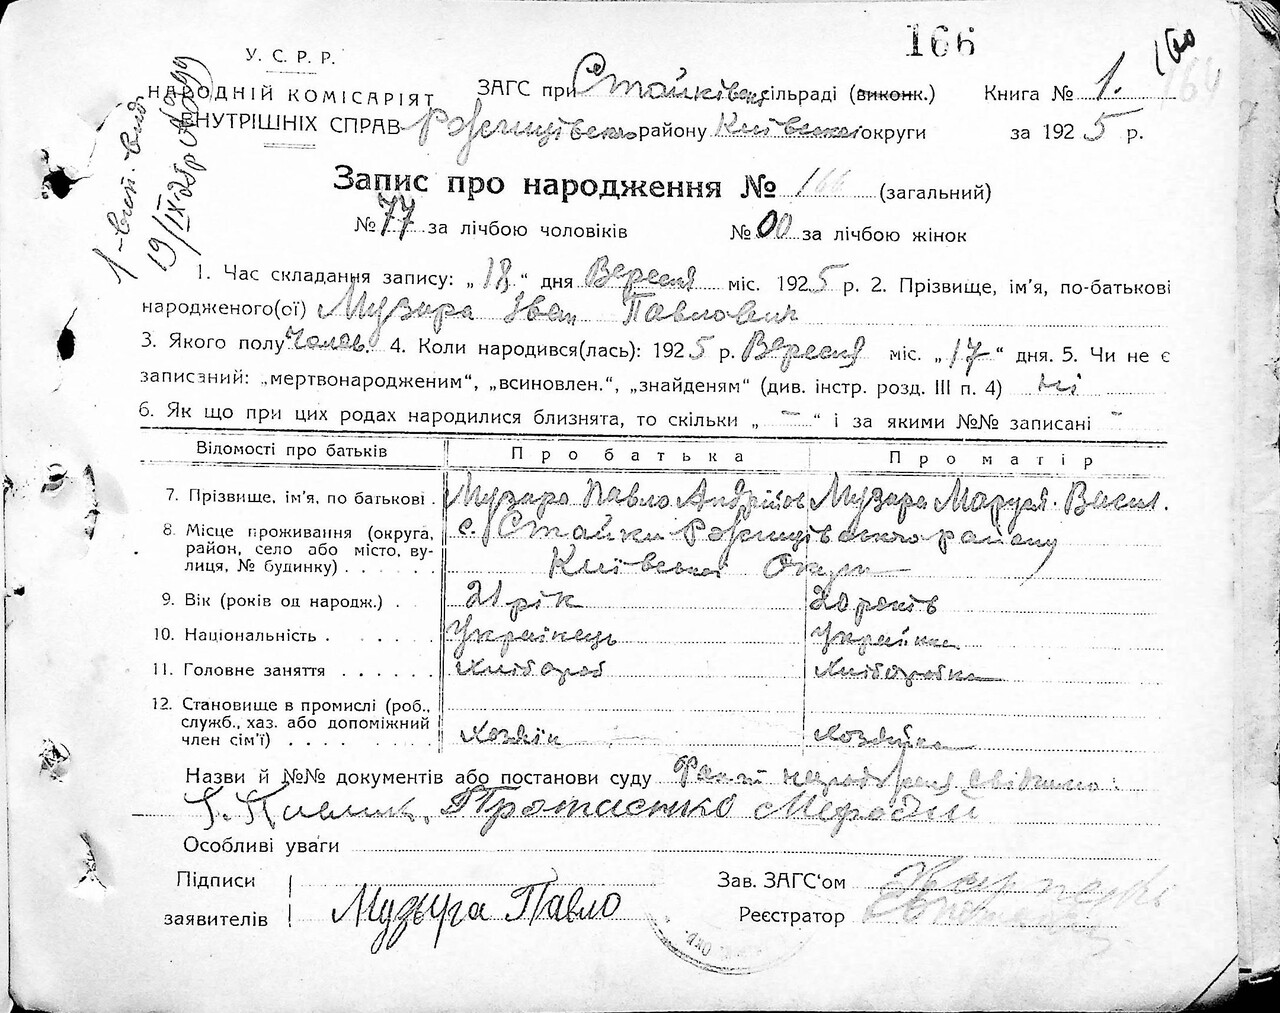 166
У. С. Р. Р.
НАРОДНІЙ КОМІСАРІЯТ
ВНУТРІШНІХ СПРАВ
ЗАГС при Стайківськ сільраді (виконк.) Книга № 1.
району Київської округи за 1925 р.
Запис про народження № 166 (загальний)
№ 77 за лічбою чоловіків № 00 за лічбою жінок
1. Час складання запису: „18“ дня Вересня міс. 1925 р. 2. Прізвище, ім'я, по-батькові
народженого(ої) Музира Іван Павлович
3. Якого полу Чолов. 4. Коли народився(лась): 1925 р. Вересня міс. „17“ дня. 5. Чи не є
записаний: „мертвонародженим“, „всиновлен.“, „знайденям“ (див. інстр. розд. III п. 4) ні
6. Як що при цих родах народилися близнята, то скільки „—“ і за якими №№ записані —
Відомості про батьків Про батька Про матір
7. Прізвище, ім'я, по батькові . Музира Павло Андрійов Музира Маруся Васил.
8. Місце проживання (округа, с. Стайки району
район, село або місто, ву-
лиця, № будинку) . . . . . Київської Округи
9. Вік (років од народж.) . . 21 рік 20 років
10. Національність . . . . . . Українець Українка
11. Головне заняття . . . . . . Хлібороб Хлібороб­ка
12. Становище в промислі (роб.,
служб., хаз. або допоміжний
член сім'ї) . . . . . . . . Хозяїн Хозяйка
Назви й №№ документів або постанови суду Факт народження свідчимо:
Протасенко Мефодій
Особливі уваги
Підписи
заявителів Музыра Павло
Зав. ЗАГС'ом
Реєстратор